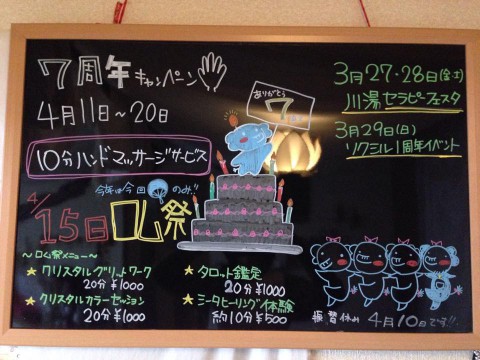 7周年キャンペーン
4月11日～20日
10分ハンドマッサージサービス
今年は今回のみ!!
4/15日ロム祭
～ロム祭メニュー～
★クリスタルグリットワーク
20分 ¥1000
★クリスタルカラーセッション
20分 ¥1000
★タロット鑑定
20分 ¥1000
★シータヒーリング体験
約10分 ¥500
ありがとう
7
3月27・28日(金土)
川湯セラピーフェスタ
3月29日(日)
ソクミル1周年イベント
振替休み 4月10日です!!